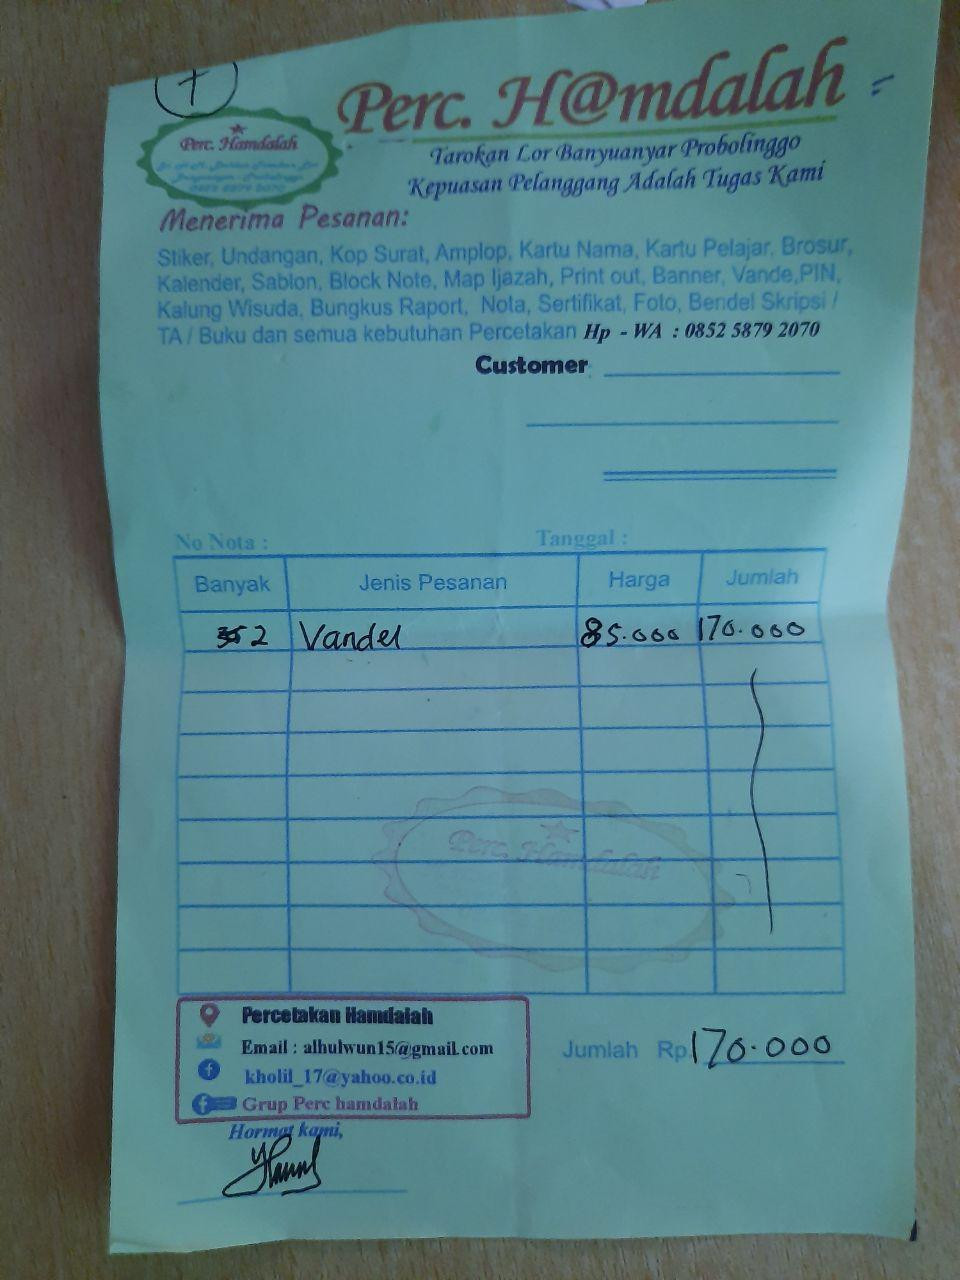 7
Perc. H@mdalah
Perc. Hamdalah
Tarokan Lor Banyuanyar Probolinggo
Kepuasan Pelanggang Adalah Tugas Kami
Menerima Pesanan:
Stiker, Undangan, Kop Surat, Amplop, Kartu Nama, Kartu Pelajar, Brosur,
Kalender, Sablon, Block Note, Map Ijazah, Print out, Banner, Vande,PIN,
Kalung Wisuda, Bungkus Raport, Nota, Sertifikat, Foto, Bendel Skripsi /
TA / Buku dan semua kebutuhan Percetakan Hp - WA : 0852 5879 2070
Customer
No Nota : Tanggal :
Banyak Jenis Pesanan Harga Jumlah
2 Vandel 85.000 170.000
Perc. Hamdalah
Percetakan Hamdalah
Email : alhulwun15@gmail.com
kholil_17@yahoo.co.id
Grup Perc hamdalah
Jumlah Rp. 170.000
Hormat kami,